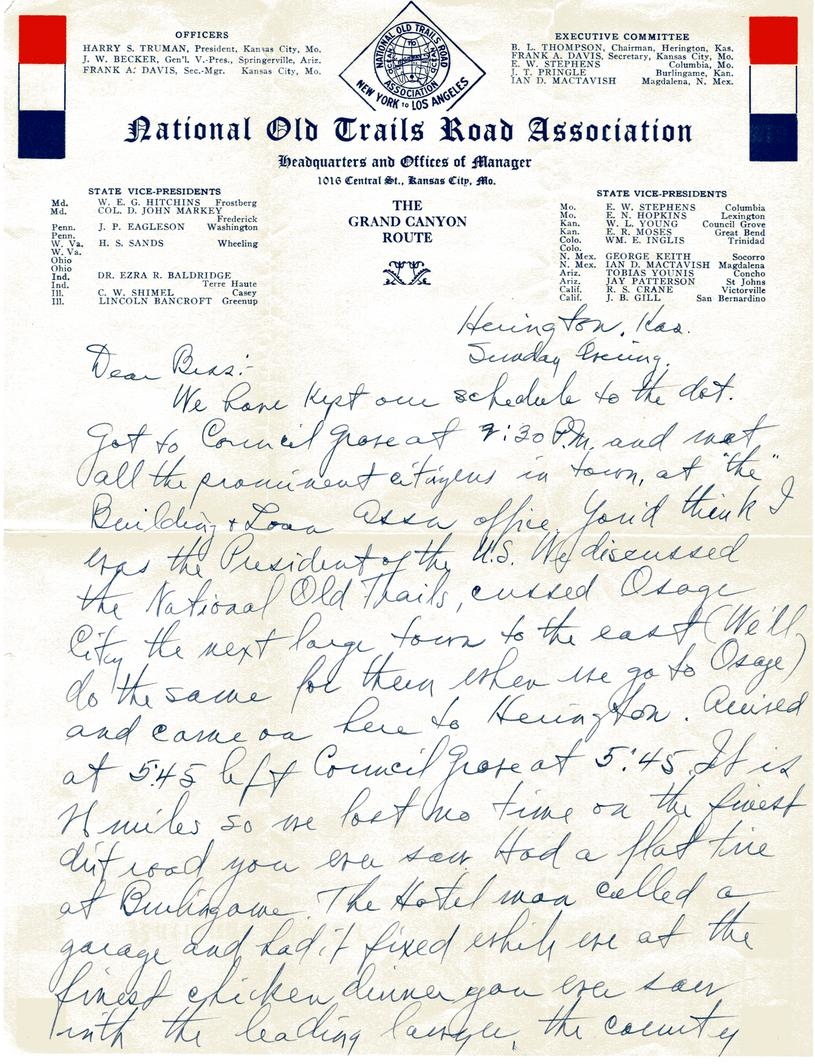 OFFICERS
HARRY S. TRUMAN, President, Kansas City, Mo.
J. W. BECKER, Gen'l. V.-Pres., Springerville, Ariz.
FRANK A. DAVIS, Sec.-Mgr. Kansas City, Mo.
NATIONAL OLD TRAILS ROAD
OCEAN TO OCEAN HIGHWAY
ASSOCIATION
NEW YORK TO LOS ANGELES
EXECUTIVE COMMITTEE
B. L. THOMPSON, Chairman, Herington, Kas.
FRANK A. DAVIS, Secretary, Kansas City, Mo.
E. W. STEPHENS Columbia, Mo.
J. T. PRINGLE Burlingame, Kan.
IAN D. MACTAVISH Magdalena, N. Mex.
National Old Trails Road Association
Headquarters and Offices of Manager
1016 Central St., Kansas City, Mo.
STATE VICE-PRESIDENTS
Md. W. E. G. HITCHINS Frostberg
Md. COL. D. JOHN MARKEY
Frederick
Penn. J. P. EAGLESON Washington
Penn.
W. Va. H. S. SANDS Wheeling
W. Va.
Ohio
Ohio
Ind. DR. EZRA R. BALDRIDGE
Ind. Terre Haute
Ill. C. W. SHIMEL Casey
Ill. LINCOLN BANCROFT Greenup
THE
GRAND CANYON
ROUTE
STATE VICE-PRESIDENTS
Mo. E. W. STEPHENS Columbia
Mo. E. N. HOPKINS Lexington
Kan. W. L. YOUNG Council Grove
Kan. E. R. MOSES Great Bend
Colo. WM. E. INGLIS Trinidad
Colo.
N. Mex. GEORGE KEITH Socorro
N. Mex. IAN D. MACTAVISH Magdalena
Ariz. TOBIAS YOUNIS Concho
Ariz. JAY PATTERSON St Johns
Calif. R. S. CRANE Victorville
Calif. J. B. GILL San Bernardino
Herington, Kas.
Sunday Evening.
Dear Bess:-
We have kept our schedule to the dot.
Got to Council Grove at :30 P.M. and met
all the prominent citizens in town, at "the"
Building & Loan Assn office. You'd think I
was the President of the U.S. We discussed
the National Old Trails, cussed Osage
City the next large town to the east (We'll
do the same for them when we go to Osage)
and came on here to Herington. Arrived
at 5:45 left Council Grove at 5:45. It is
miles so we lost no time on the finest
dirt road you ever saw. Had a flat tire
at Burlingame. The Hotel man called a
garage and had it fixed while we at the
finest chicken dinner you ever saw
with the leading lawyer, the county